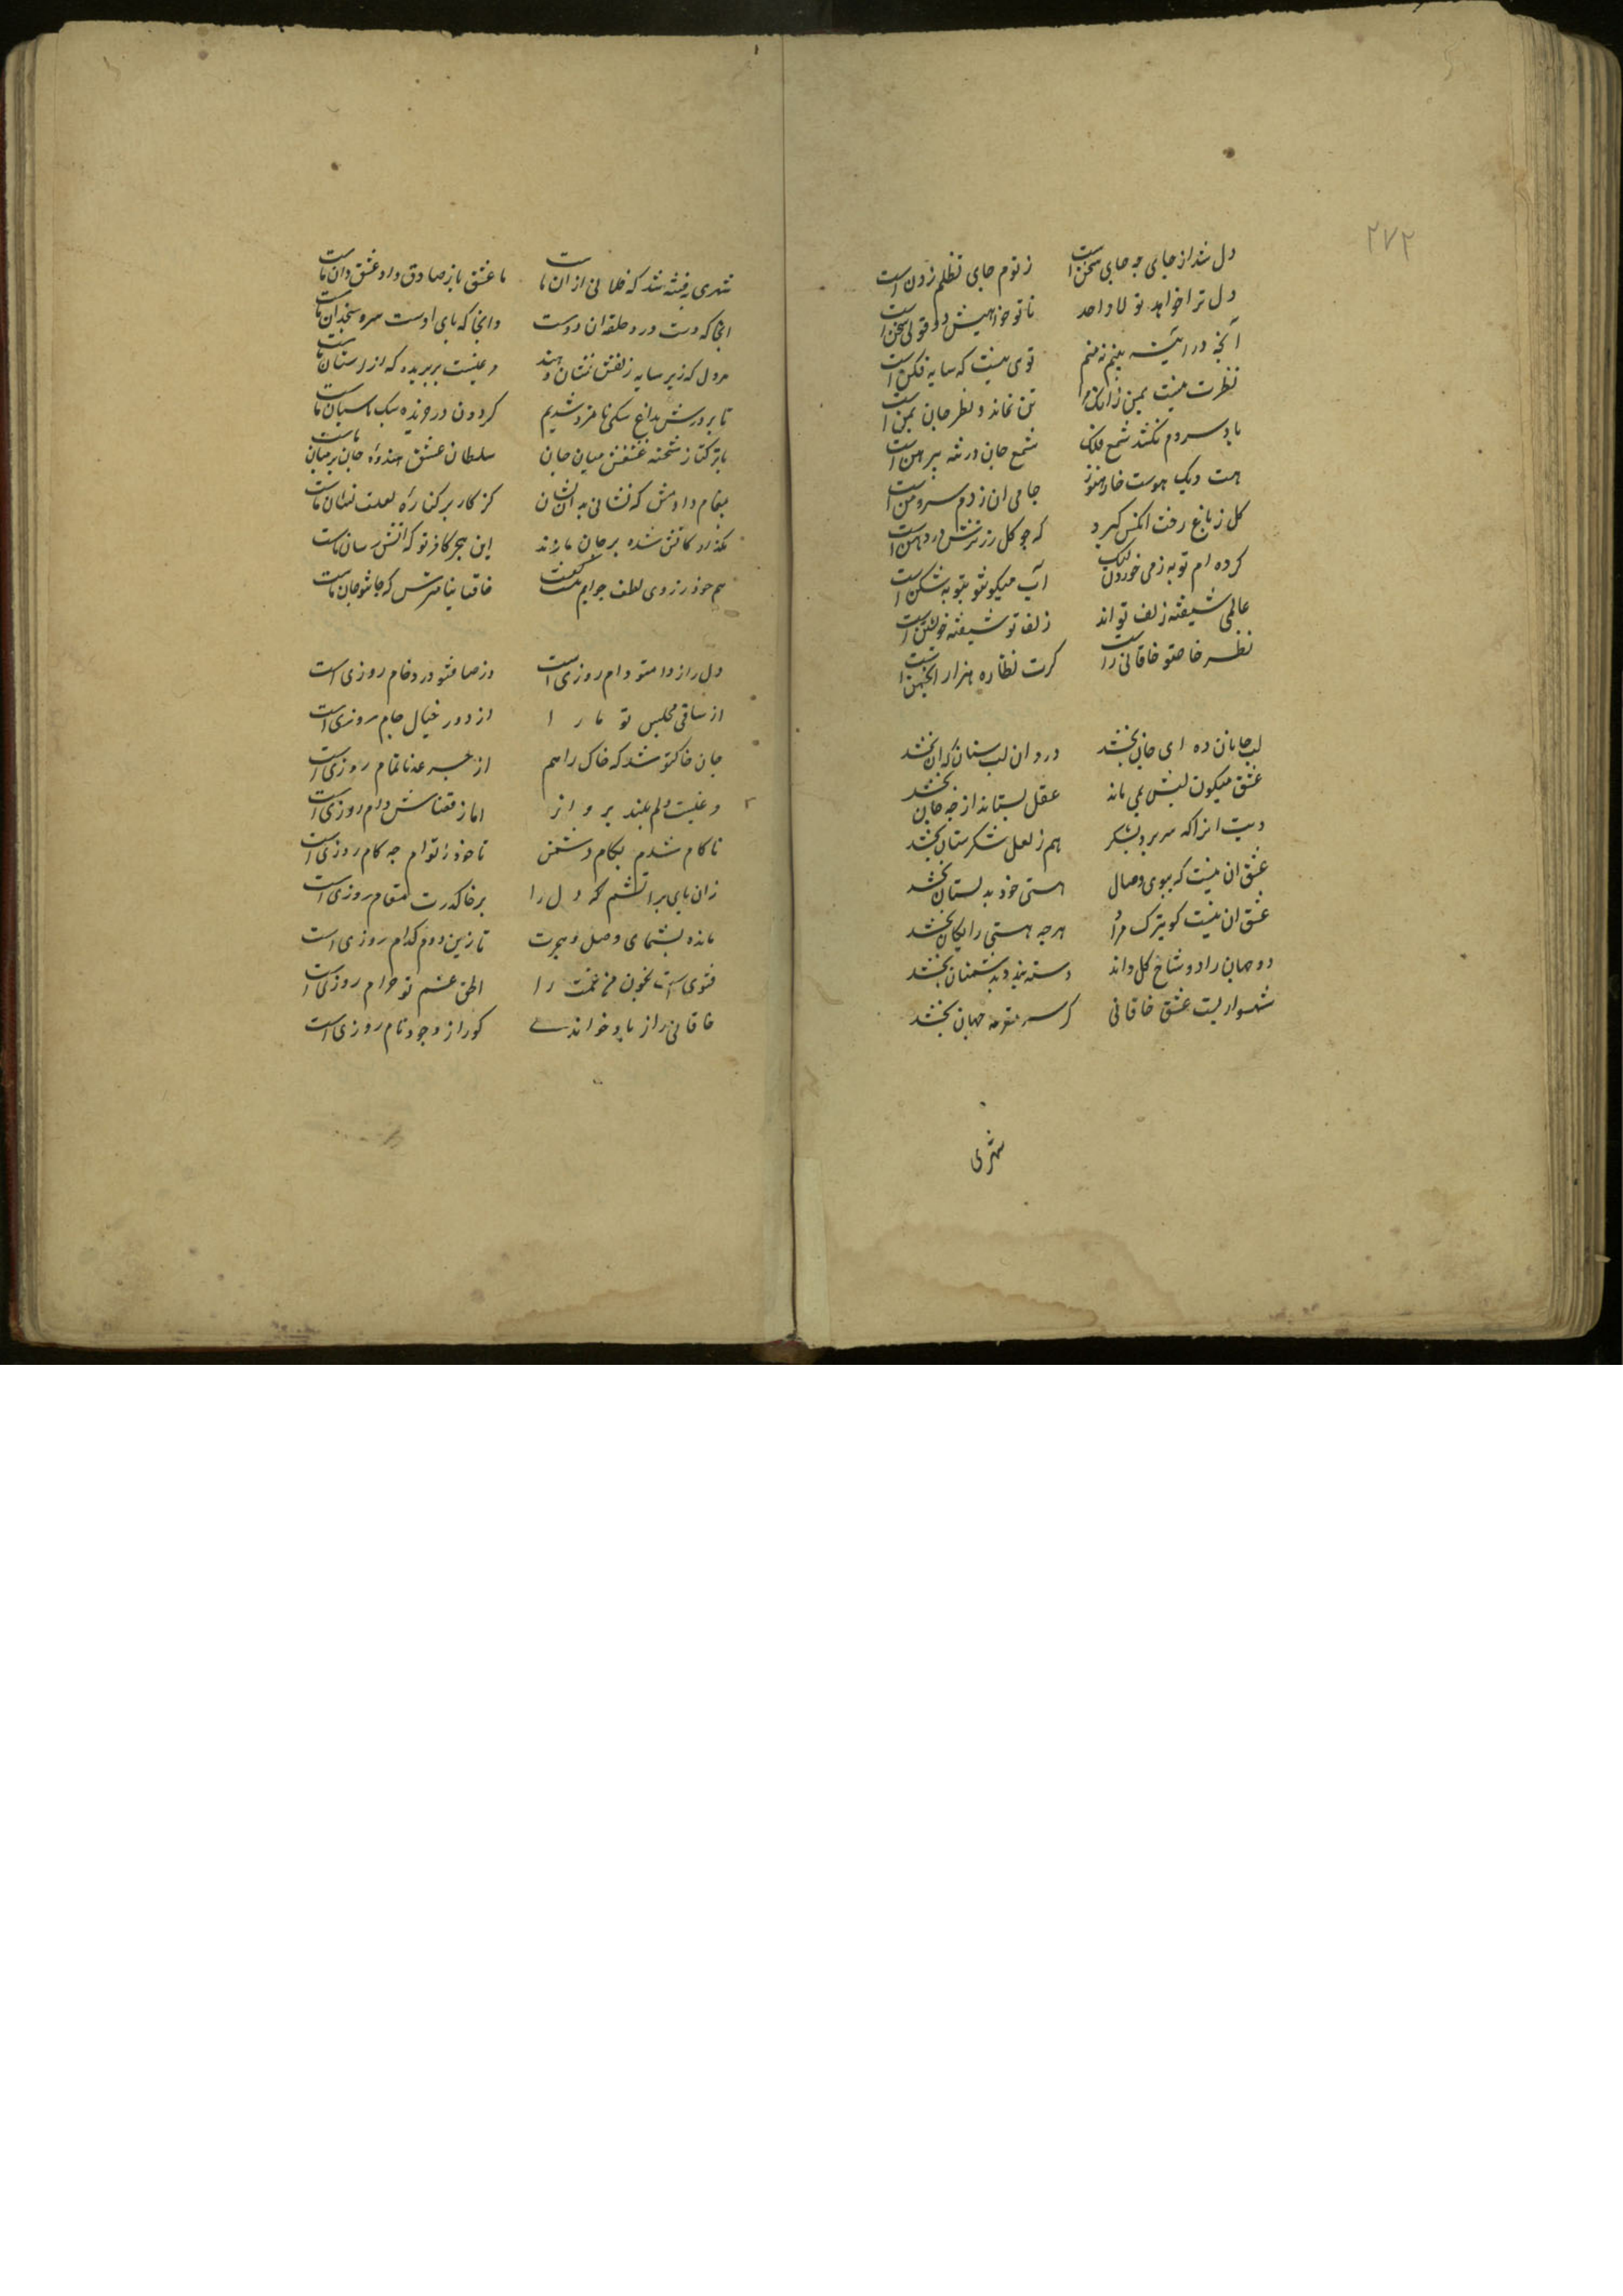 ۲۷۲
دل شد از جای چه جای سخن است
ز توم جای تظلم زدن است
دل ترا خواهد تو لا واحد
تا تو خواهیش دو قولی سخن است
آنچه در آینه بینم نه منم
توی نیست که سایه فکن است
نظرت نیست بمن زانکه مرا
تن نماند و نظر جان بمن است
باد سردم نکشد شمع فلک
شمع جان در تنه پیرهن است
هست دیک هوست خام هنوز
جامی ان زدم سرد من است
کل ز باغ رخت انکس کیرد
که چو کل زر ترش در دهن است
کرده ام توبه ز می خوردن لیک
لب میکونتو توبه شکن است
عالمی شیفته زلف تو اند
زلف تو شیفته خویشتن است
نظر خاصتو خاقانی راست
کرت نظاره هزار انجمن است
لب جانان ده ای جان بخشد
درد ان لب ستان که ان بخشد
عشق میکون لبش بمی ماند
عقل بستاند ار چه جان بخشد
دیت انرا که سر برد بشکر
هم ز لعل شکرستان بخشد
عشق ان نیست که ببوی وصال
هستی خود بدلستان بخشد
عشق ان نیست کو بترک مراد
هرچه هستی رایکان بخشد
دو جهان را دو شاخ کل داند
دسته بندد بدشمنان بخشد
شهسواریست عشق خاقانی
کز سر مقرعه جهان بخشد
شهری
شهری بفتنه شد که فلانی از ان ماست
ما عشق باز صادق و او عشق دان ماست
انجا که دست در و حلقه ان دوست
وانجا که پای اوست سر و سجدان ماست
هر دل که زیر سایه زلفش نشان دهند
مرغیست بر پریده که از اشیان ماست
تا پرورش بداغ سکی نامزد شدیم
کردون در خرنده سک پاسبان ماست
با ترکتاز شحنه عشقش میان جان
سلطان عشق هندوی جان بر میان ماست
پیغام دادمش که نشانی به ان نشان
کز کاز بر کناره لعلت نشان ماست
بکذرد کاتش شده بر جان ما زند
این هجر کافر تو که اتش رسان ماست
هم خود ز روی لطف جوابم بکفت
خاقانیا مترس که جانتو جان ماست
دل را ز دامتو دام روزی است
وز صافتو درد خام روزی است
از ساقی مجلس تو ما را
از دور خیال جام روزی است
جان خاکتو شد که خاک را هم
از جرعه ناتمام روزی است
مرغیست دلم بلند پرواز
اما ز قضاش دام روزی است
ناکام شدم بکام دشمن
تا خود ز توام چه کام روزی است
زان پای براتشم که دل را
بر خاک درت مقام روزی است
مانده بشهای وصل و هجرت
تا زین دو مرا کدام روزی است
فتوی است بخون من غمت را
الحق غم تو حرام روزی است
خاقانی را ز یاد خواندی
کو را ز وجود نام روزی است